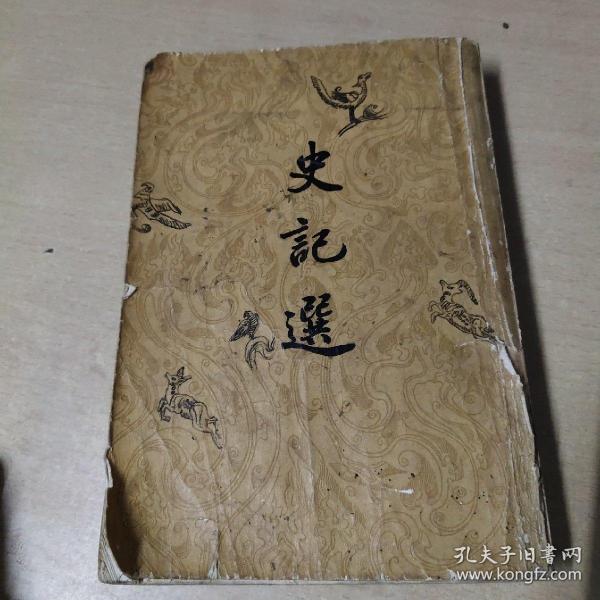 史記選
孔夫子旧書网
www.kongfz.com